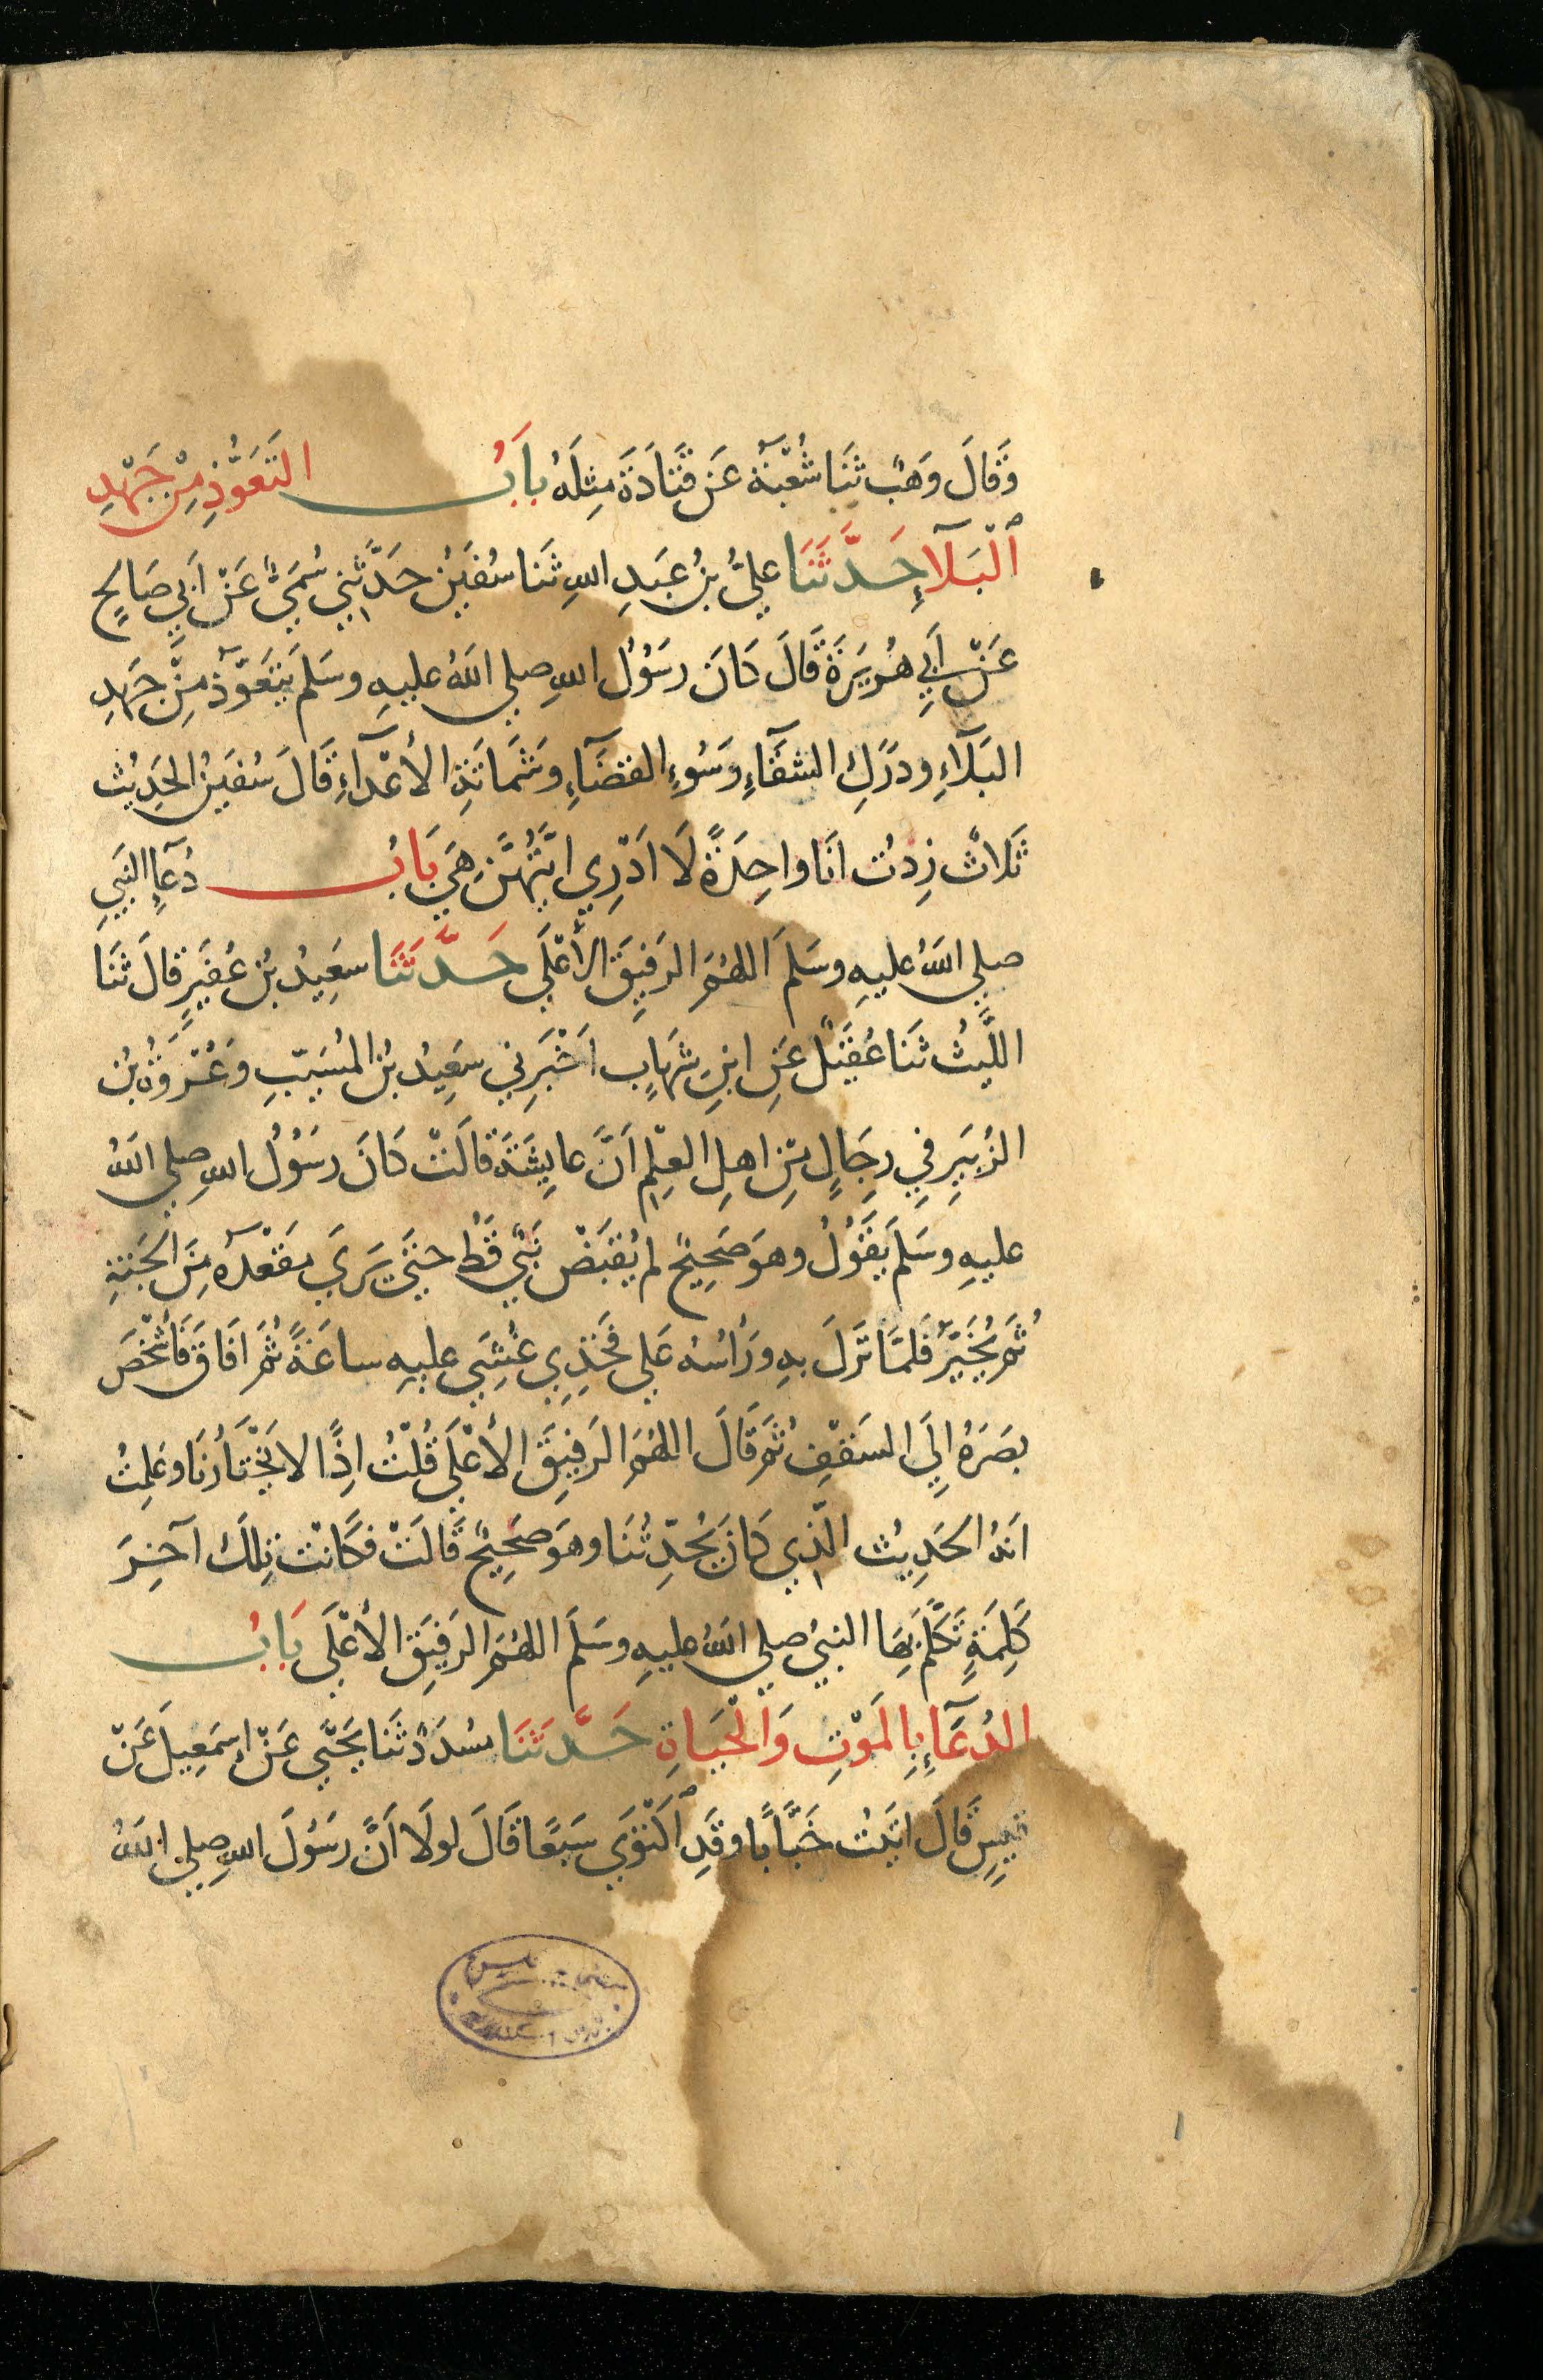 وَقَالَ وَهْبٌ ثَنَا شُعْبَةُ عَنْ قَتَادَةَ مِثْلَهُ بَابُ التَعَوُّذِ مِنْ جَهْدِ
ٱلْبَلَآءِ حَدَّثَنَا عَلِيُّ بْنُ عَبْدِ اللهِ ثَنَا سُفْيَنُ حَدَّثَنِي سُمَيٌّ عَنْ اَبِي صَالِحٍ
عَنْ اَبِي هُرَيْرَةَ قَالَ كَانَ رَسُوْلُ اللهِ صلي اللهُ عليهِ وسَلم يَتَعَوَّذُ مِنْ جَهْدِ
البَلَآءِ ودَرَكِ الشقَآءِ وَسُوءِ القضَآءِ وشَمَاتَةِ الأعْدَآءِ قَالَ سُفيَنُ الحَدِيْث
ثَلاثٌ زِدتُ انَا واحِدَةً لَا اَدْرِي ايَّتُهُنَّ هِيَ بَابُ دُعَآءِ النَبِيِ
صلي اللهُ عليهِ وسَلمَ اللهُمَ الرَفِيقَ الأعْلَي حَدَّثَنَا سَعِيْدُ بْنُ عُفَيْرٍ قالَ ثَنَا
اللَّيْثُ ثَنَا عُقَيْلٌ عَنِ ابنِ شِهَابٍ اَخْبَرِني سَعِيْدُ بْنُ المُسَيّبِ وَعُرْوَةُ بْنُ
الزُبَيرِ فِي رِجَالٍ مِّنْ اهلِ العِلْمِ اَنَّ عايِشَةَ قالَتْ كَانَ رَسُوْلُ اللهِ صلي اللهُ
عليهِ وسَلم يَقُوْلُ وهوَ صَحِيْحٌ لم يُقبَضْ نَبيٌّ قَطُ حتيَّ يَرَي مَقْعَدَهُ مِنَ الجَنَةِ
ثُمَ يُخَيَّرُ فَلمَّا نَزَلَ بهِ ورَأسُهُ عَلي فَخَذِي غُشِيَ عليهِ ساعَةً ثُمَ افَاقَ فَأَشْخَصَ
بصَرَهُ اِلَي السَقفِ ثُمَ قَالَ اللهُمَ الرَفِيقَ الأعْلَي قُلْتُ اِذًا لا يَخْتَارُنَا وعَلِمْتُ
اَنهُ الحَدِيْث الّذِي كَانَ يُحَدِّثُنَا وهوَ صَحِيْحٌ قَالَتْ فكَانَتْ تِلْكَ آخِرَ
كَلِمَةٍ تَكَلَّمَ بِهَا النبيُ صلي اللهُ عليهِ وسَلمَ اللهُمَ الرَفِيقَ الأعْلَي بَابُ
الدُعَآءِ بِالمَوْتِ وَالْحَيَاةِ حَدَّثَنَا مسُدَدٌ ثَنَا يَحْيَي عَنْ اِسمَعِيلَ عَنْ
قيسٍ قَالَ اتَيتُ خَبَّابًا وقَدِ ٱكْتَوَي سَبعًا قَالَ لولَا اَنَّ رسُوْلَ اللهِ صلي اللهُ